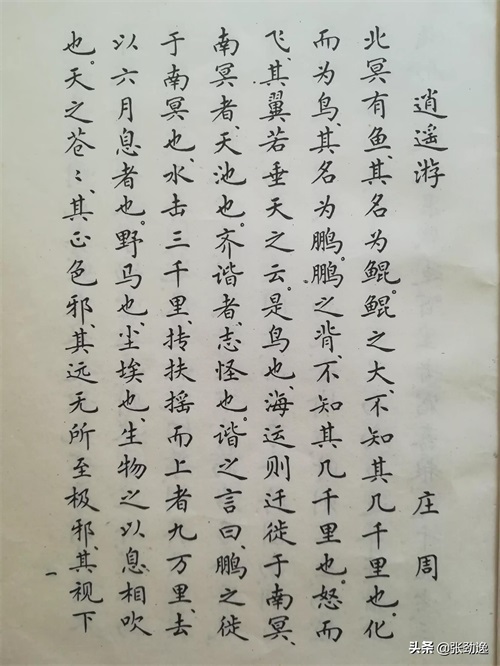 逍遥游
庄周
北冥有鱼、其名为鲲。鲲之大、不知其几千里也、化
而为鸟、其名为鹏。鹏之背、不知其几千里也。怒而
飞、其翼若垂天之云。是鸟也、海运则迁徙于南冥、
南冥者、天池也。齐谐者、志怪也。谐之言曰、鹏之徙
于南冥也、水击三千里、抟扶摇而上者九万里、去
以六月息者也。野马也、尘埃也、生物之以息相吹
也。天之苍〻、其正色邪、其远无所至极邪、其视下
一
头条 @张劲逸